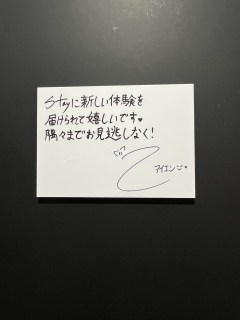 Stayに新しい体験を
届けられて嬉しいです♥
隅々までお見逃しなく!
アイエン